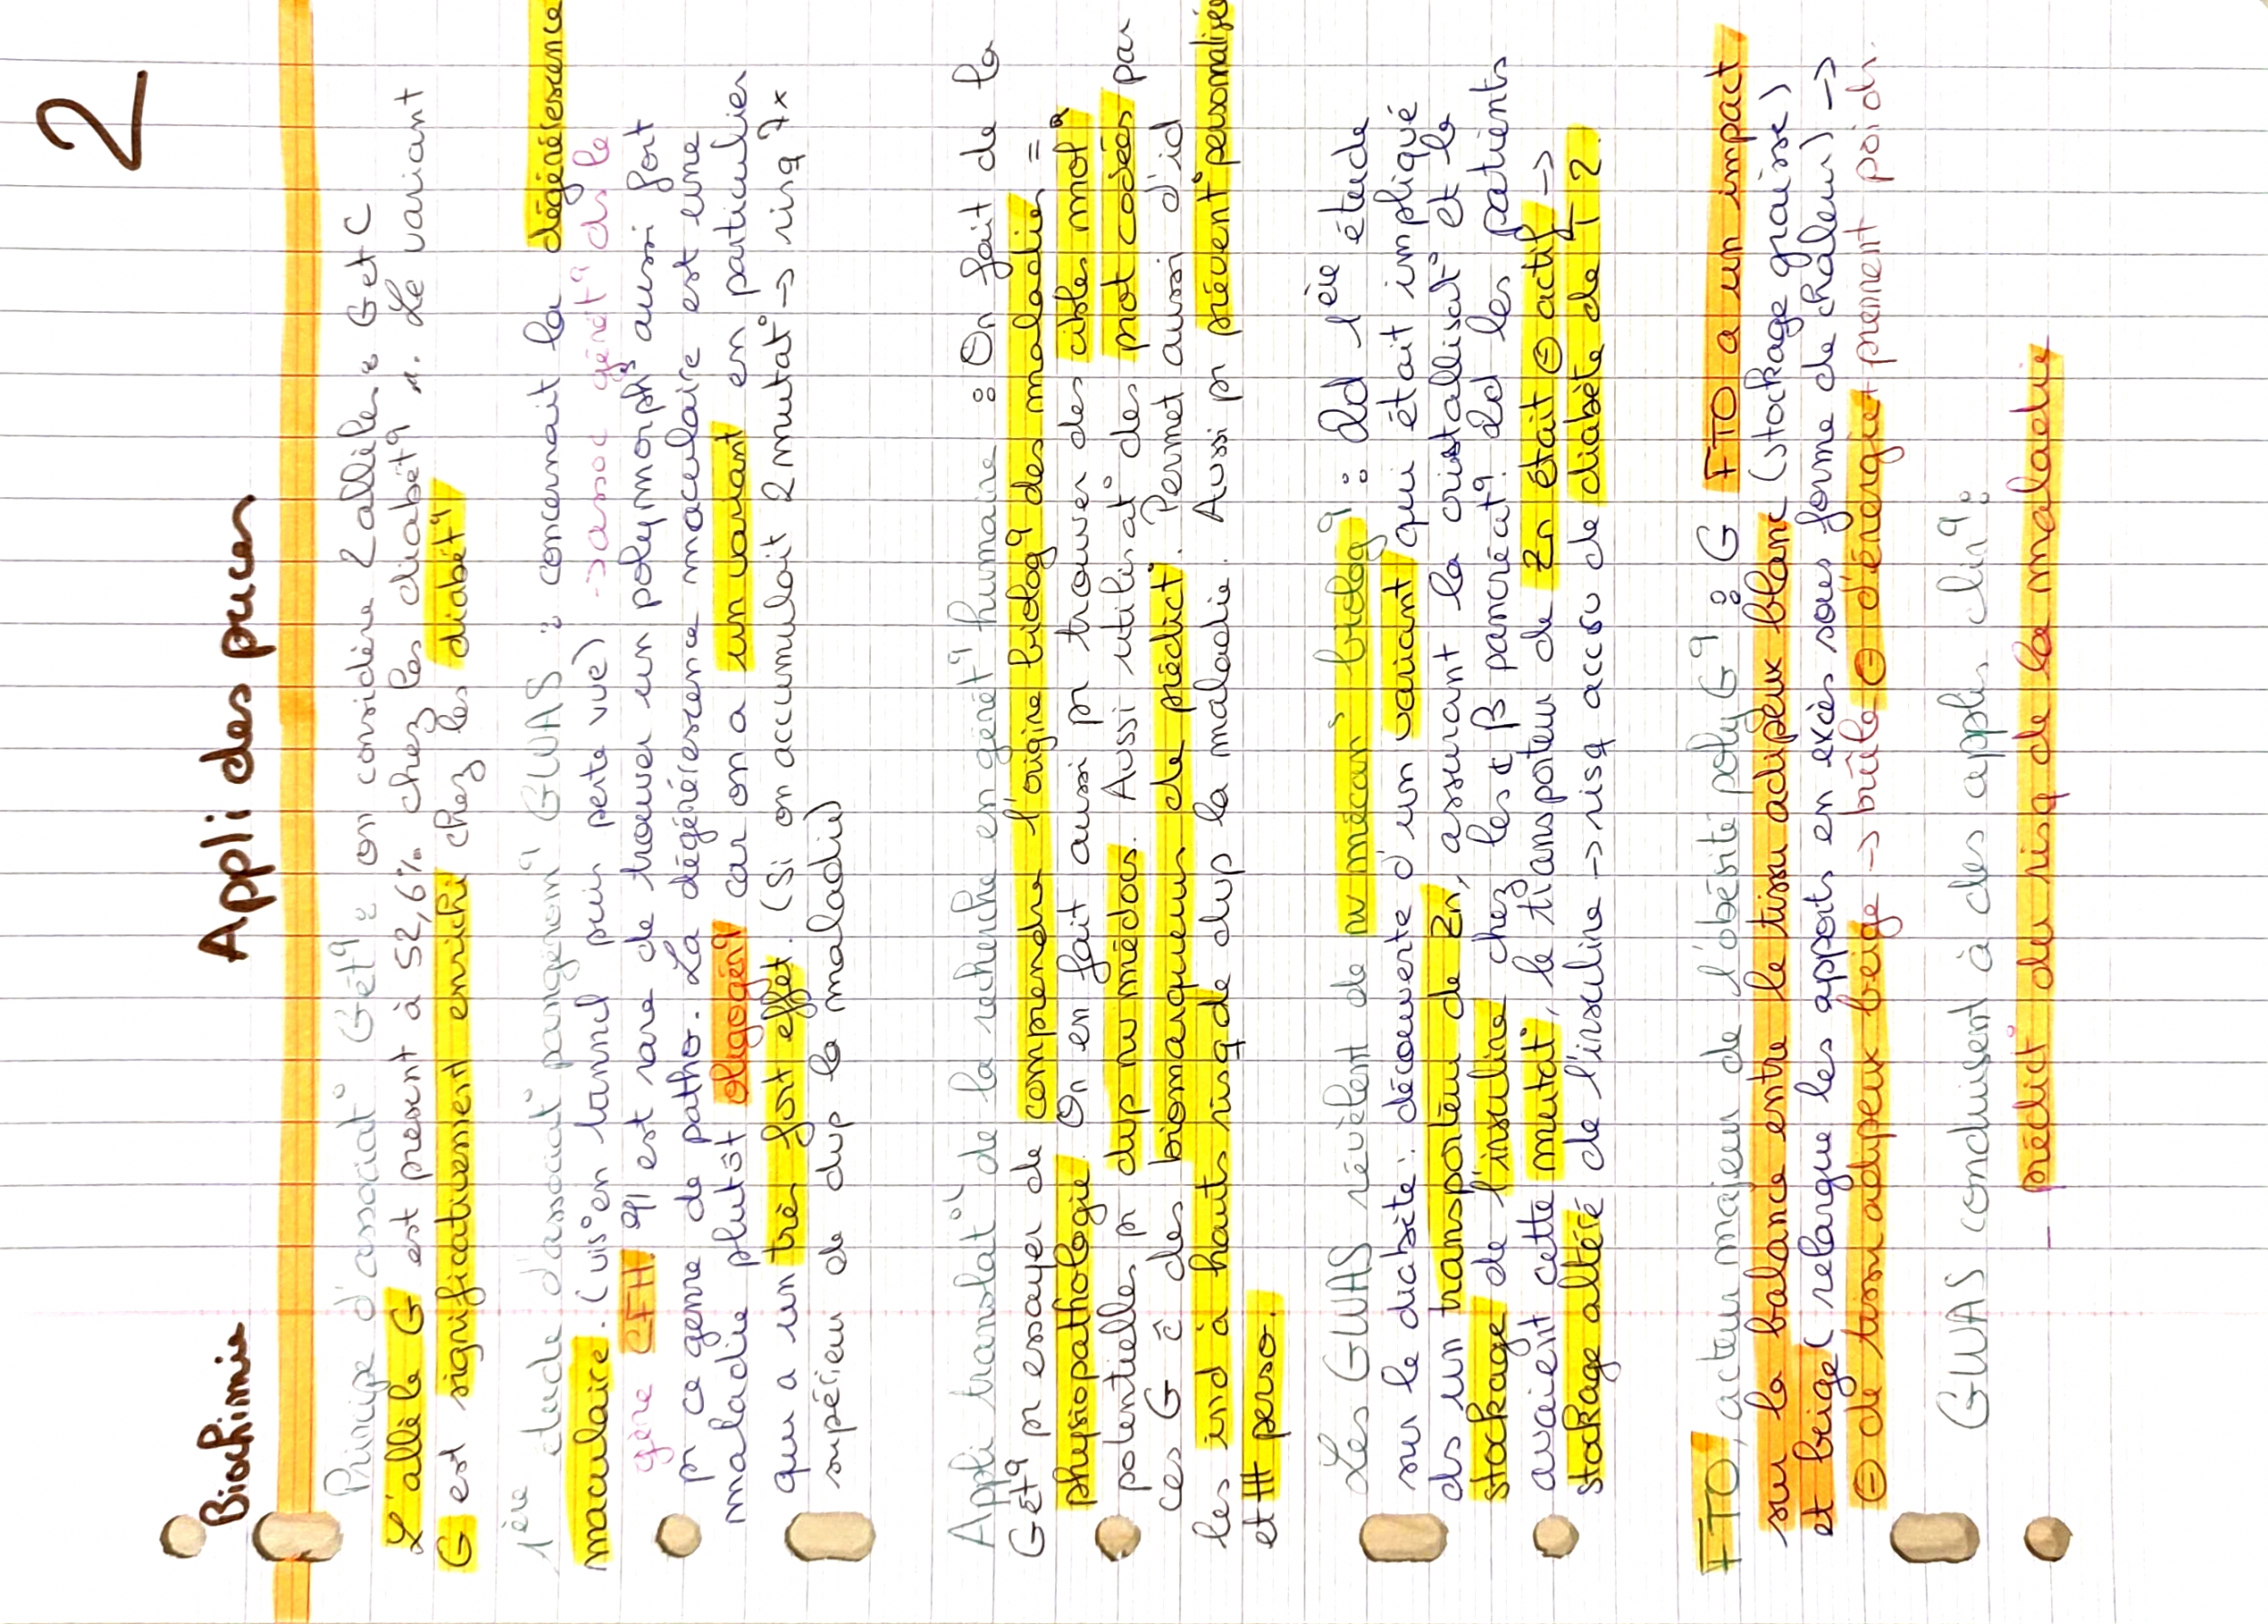 2
Biochimie
Appli des puces
Principe d'associat° Gét^q : on considère 2 allèles : G et C
L'allèle G est présent à 52,6% chez les diabét^q s. Le variant
G est significativement enrichi chez les diabét^q
1ère étude d'associat° pangénom^q GWAS : concernait la dégénérescence
maculaire. (vis° en tunnel puis perte vue) -> assoc génét^q ds le
gène CFH. Il est rare de trouver un polymorph^q aussi fort
pr ce genre de patho. La dégénérescence maculaire est une
maladie plutôt oligogén^q car on a un variant en particulier
qui a un très fort effet. (Si on accumulait 2 mutat° -> risq 7x
supérieur de dvp la maladie)
Appli translat°L de la recherche en génét^q humaine : On fait de la
Gét^q pr essayer de comprendre l'origine biolog^q des maladies =
physiopathologie. On en fait aussi pr trouver des cibles mol^R
potentielles pr dvp nv médocs. Aussi utilisat° des prot codées par
ces G c̄ des biomarqueurs de prédict°. Permet aussi d'id
les ind à hauts risq de dvp la maladie. Aussi pr prévent° personnalisée
et ttt perso.
Les GWAS révèlent de nv mécan^s biolog^q : 2d 1ère étude
sur le diabète : découverte d'un variant qui était impliqué
ds un transporteur de Zn, assurant la cristallisat° et le
stockage de l'insuline chez les ¢ β pancréat^q. 2d les patients
avaient cette mutat°, le transporteur de Zn était ⊖ actif ->
stockage altéré de l'insuline -> risq accru de diabète de T2.
FTO, acteur majeur de l'obésité polyG^q : G FTO a un impact
sur la balance entre le tissu adipeux blanc (stockage graisse)
et beige (relargue les apports en excès sous forme de chaleur) ->
⊖ de tissu adipeux beige -> brûle ⊖ d'énergie + prennent poids.
GWAS conduisent à des applis clin^q :
- prédict° du risq de la maladie